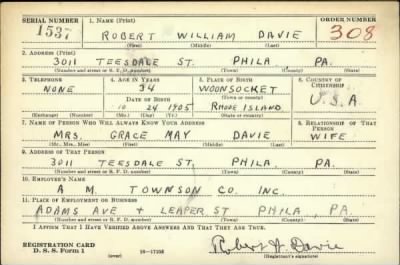 SERIAL NUMBER 1. NAME (Print) ORDER NUMBER
1537 ROBERT WILLIAM DAVIE 308
(First) (Middle) (Last)
2. ADDRESS (Print)
3011 TEESDALE ST. PHILA PA.
(Number and street or R. F. D. number) (Town) (County) (State)
3. TELEPHONE 4. AGE IN YEARS 5. PLACE OF BIRTH 6. COUNTRY OF CITIZENSHIP
NONE 34 WOONSOCKET
(Town or county)
DATE OF BIRTH U.S.A.
10 24 1905 RHODE ISLAND
(Exchange) (Number) (Mo.) (Day) (Yr.) (State or country)
7. NAME OF PERSON WHO WILL ALWAYS KNOW YOUR ADDRESS 8. RELATIONSHIP OF THAT PERSON
MRS. GRACE MAY DAVIE WIFE
(Mr., Mrs., Miss) (First) (Middle) (Last)
9. ADDRESS OF THAT PERSON
3011 TEESDALE ST, PHILA, PA.
(Number and street or R. F. D. number) (Town) (County) (State)
10. EMPLOYER'S NAME
A M. TOWNSON CO. INC.
11. PLACE OF EMPLOYMENT OR BUSINESS
ADAMS AVE + LEAPER ST PHILA, PA.
(Number and street or R. F. D. number) (Town) (County) (State)
I AFFIRM THAT I HAVE VERIFIED ABOVE ANSWERS AND THAT THEY ARE TRUE.
REGISTRATION CARD
D. S. S. Form 1 (over) Robert W. Davie
(Registrant's signature)